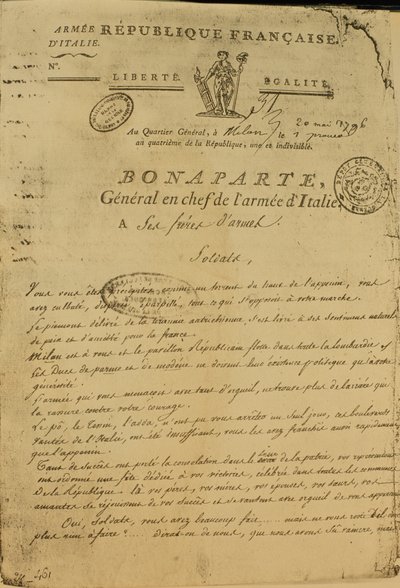 ARMÉE
D'ITALIE.
RÉPUBLIQUE FRANÇAISE.
N°.
LIBERTÉ.
EGALITÉ.
20 mai 1796
Au Quartier Général, à Milan le 1 prairial
au quatrième de la République, une et indivisible.
BONAPARTE,
Général en chef de l'armée d'Italie,
A Ses frères d'armes.
Soldats,
Vous vous êtes précipités comme un torrent du haut de l'apennin, vous
avez culbuté, dispersé, éparpillé, tous ce qui s'opposoit à votre marche.
Le piémont délivré de la tirannie autrichienne, s'est livré à ses sentiments naturels
de paix et d'amitié pour la france.
Milan est à vous et le pavillon Républicain flotte dans toute la lombardie.
Les Ducs de parme et de modène ne doivent leur existence politique qu'à votre
générosité.
L'armée qui vous menaçoit avec tant d'orgueil, ne trouve plus de barrière qui
la rassure contre votre courage.
Le pô, le Tesin, l'adda, n'ont pu vous arrêter un seul jour, ces boulevards
vantés de l'Italie, ont été insuffisants, vous les avez franchis aussi rapidement
que l'appennin.
Tant de succès ont porté la consolation dans le sein de la patrie, vos représentans
ont ordonné une fête dédiée à vos victoires, célébrée dans toutes les communes
De la République. là vos pères, vos mères, vos épouses, vos sœurs, vos
amantes se réjouissent de vos succès et se vantent avec orgueil de vous appartenir
Oui, Soldats, vous avez beaucoup fait..... mais ne vous reste-t-il
plus rien à faire?..... dira-t-on de nous, que nous avons su vaincre, mais